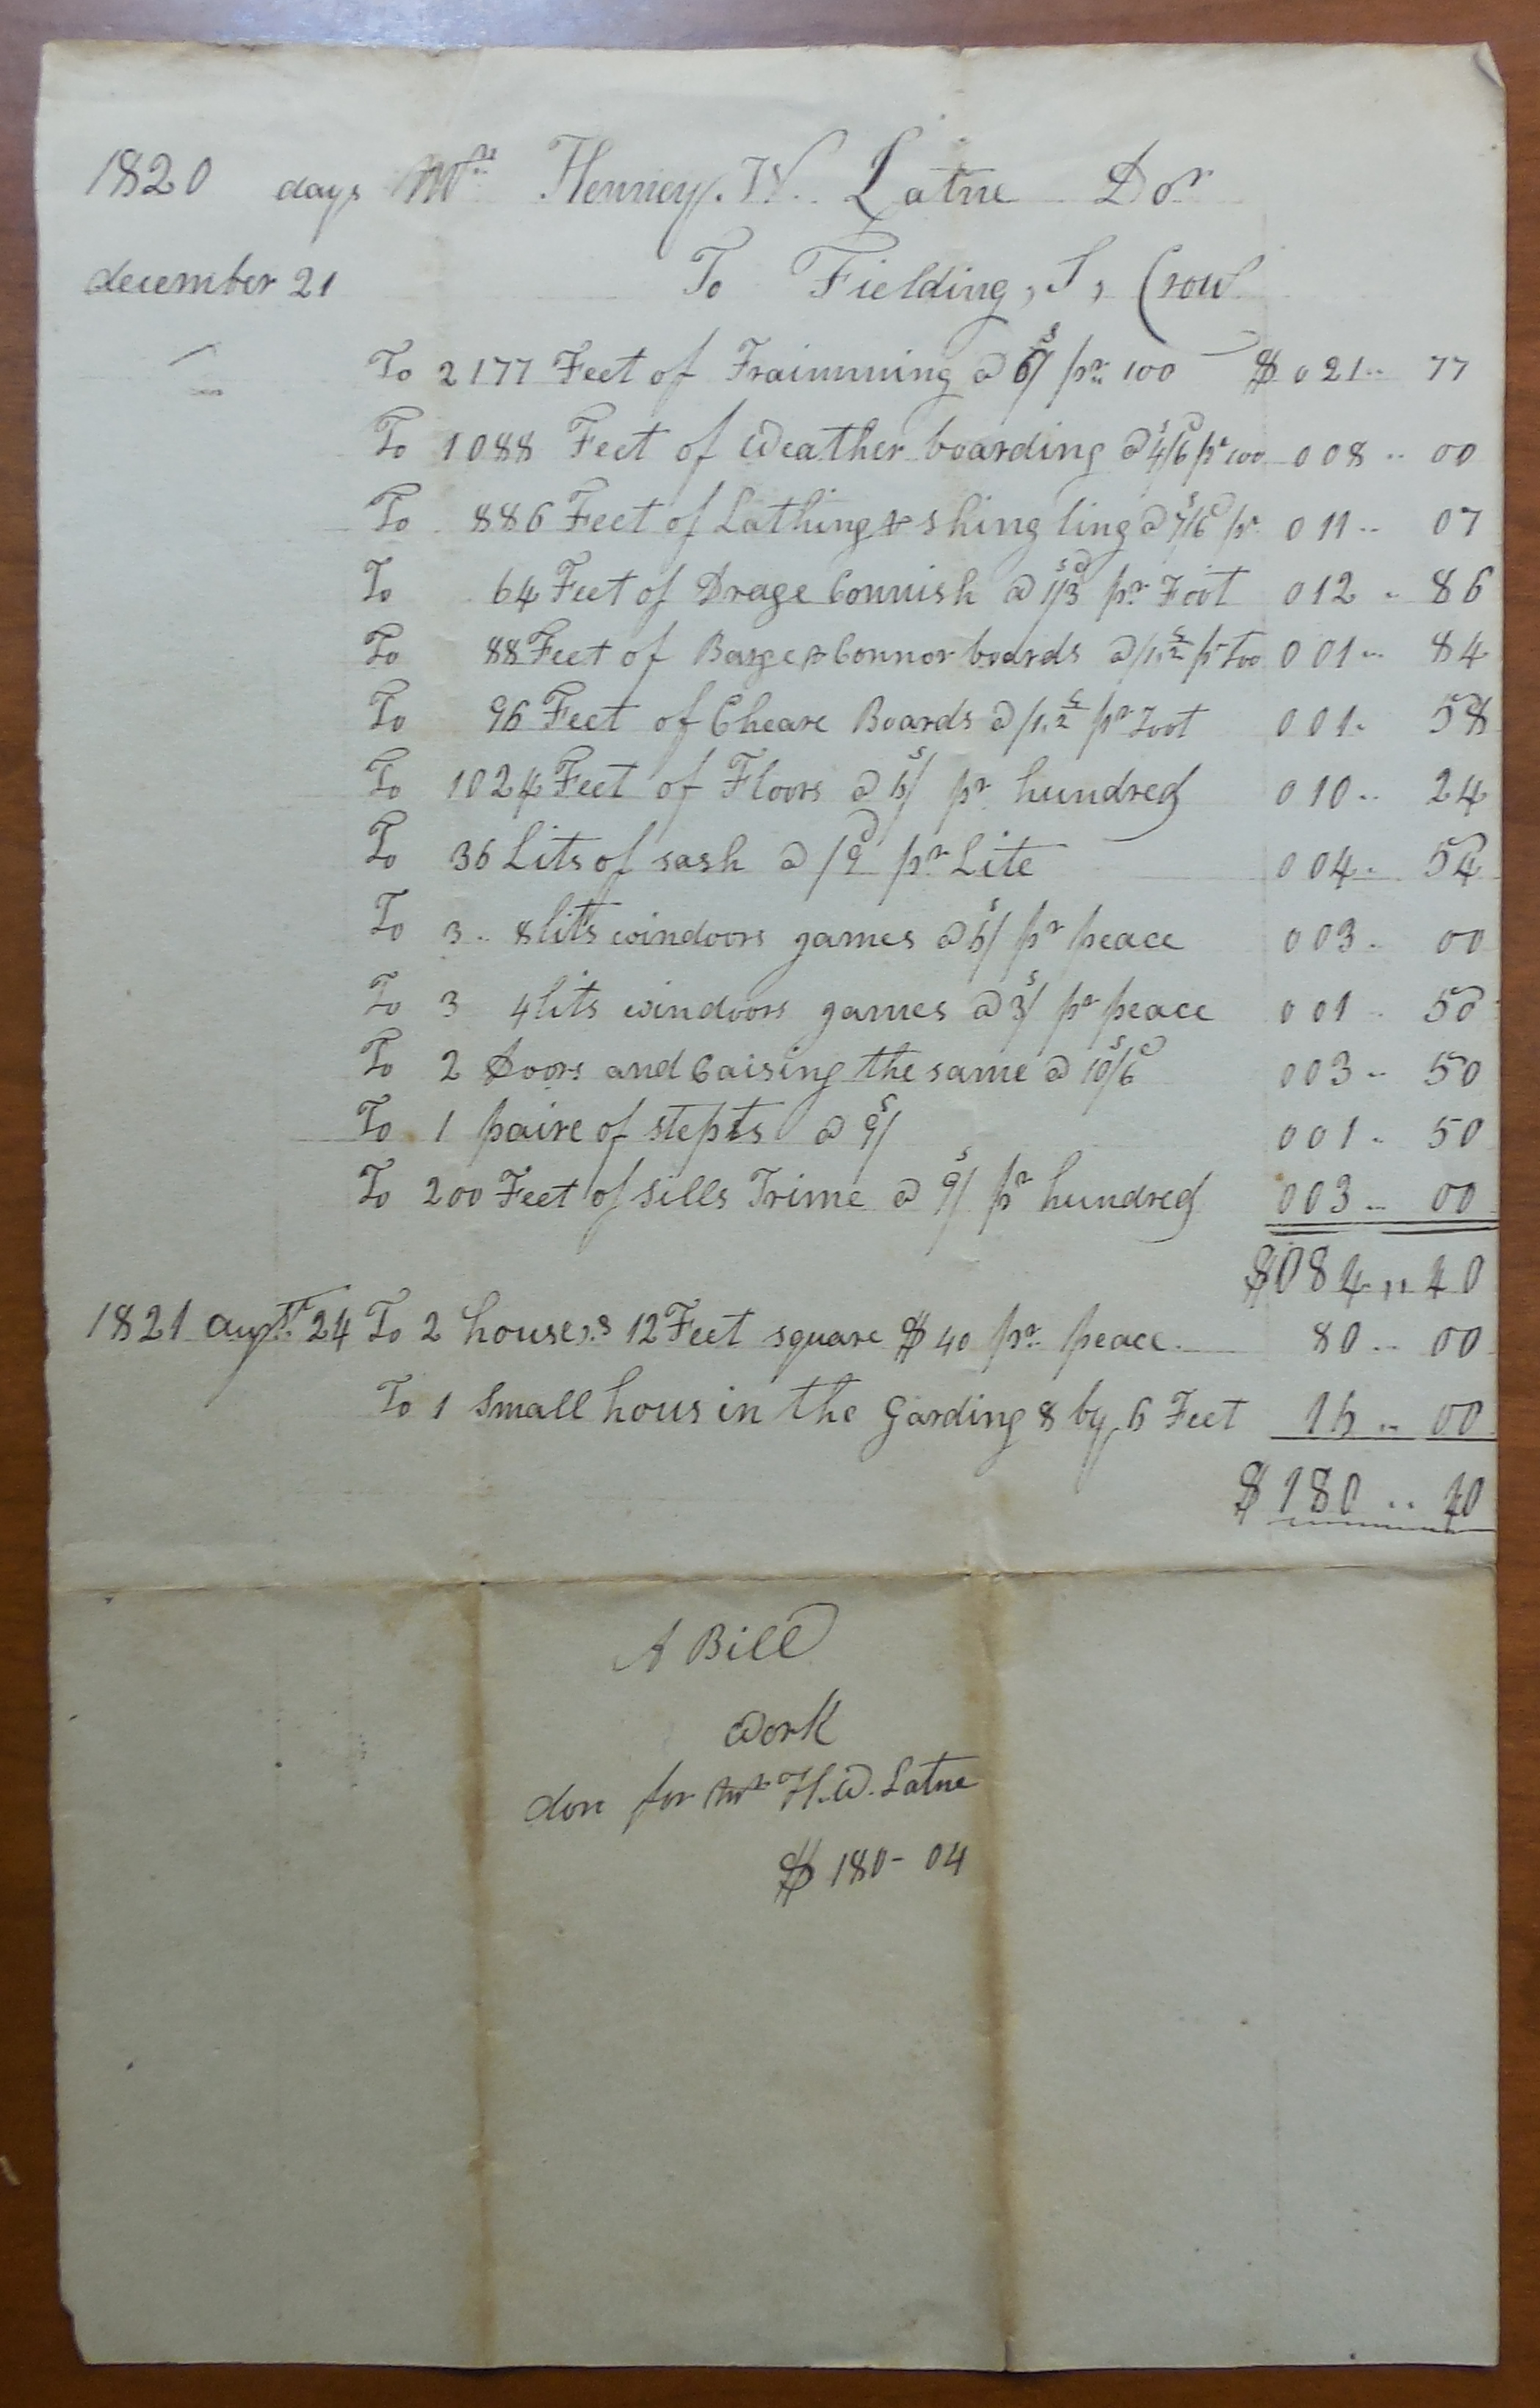 1820 days Mr Henney. W. Latne Dor
december 21 To Fielding, S, Crow
To 2177 Feet of Fraimming @ 6s/ pr 100 $ 021.. 77
To 1088 Feet of Weather boarding @ 4s/6d pr 100 008 .. 00
To 886 Feet of Lathing & shing ling @ 7s/6d pr 011 .. 07
To 64 Feet of Drage Connish @ 1s/3d pr Foot 012 .. 86
To 88 Feet of Barge & Connor boards @ /1.½ pr Foo 001 .. 84
To 96 Feet of Cheare Boards @ /1.½ pr Foot 001. 58
To 1024 Feet of Floors @ 6s/ pr hundred 010 .. 24
To 36 Lits of sash @ /9d pr Lite 004 . 54
To 3 .. 8 lits windoors games @ 6s/ pr peace 003 . 00
To 3 4 lits windoors games @ 3s/ pr peace 001 . 50
To 2 Doors and Caising the same @ 10s/6d 003 .. 50
To 1 paire of stepts @ 9s/ 001 .. 50
To 200 Feet of sills Trime @ 9s/ pr hundred 003 .. 00
$084 ,, 40
1821 augst 24 To 2 house,s 12 Feet square $ 40 pr peace. 80 .. 00
To 1 Small hous in the Garding 8 by 6 Feet 16 .. 00
$ 180 .. 40
A Bill
Work
don for Mr H. W. Latne
$ 180 - 04